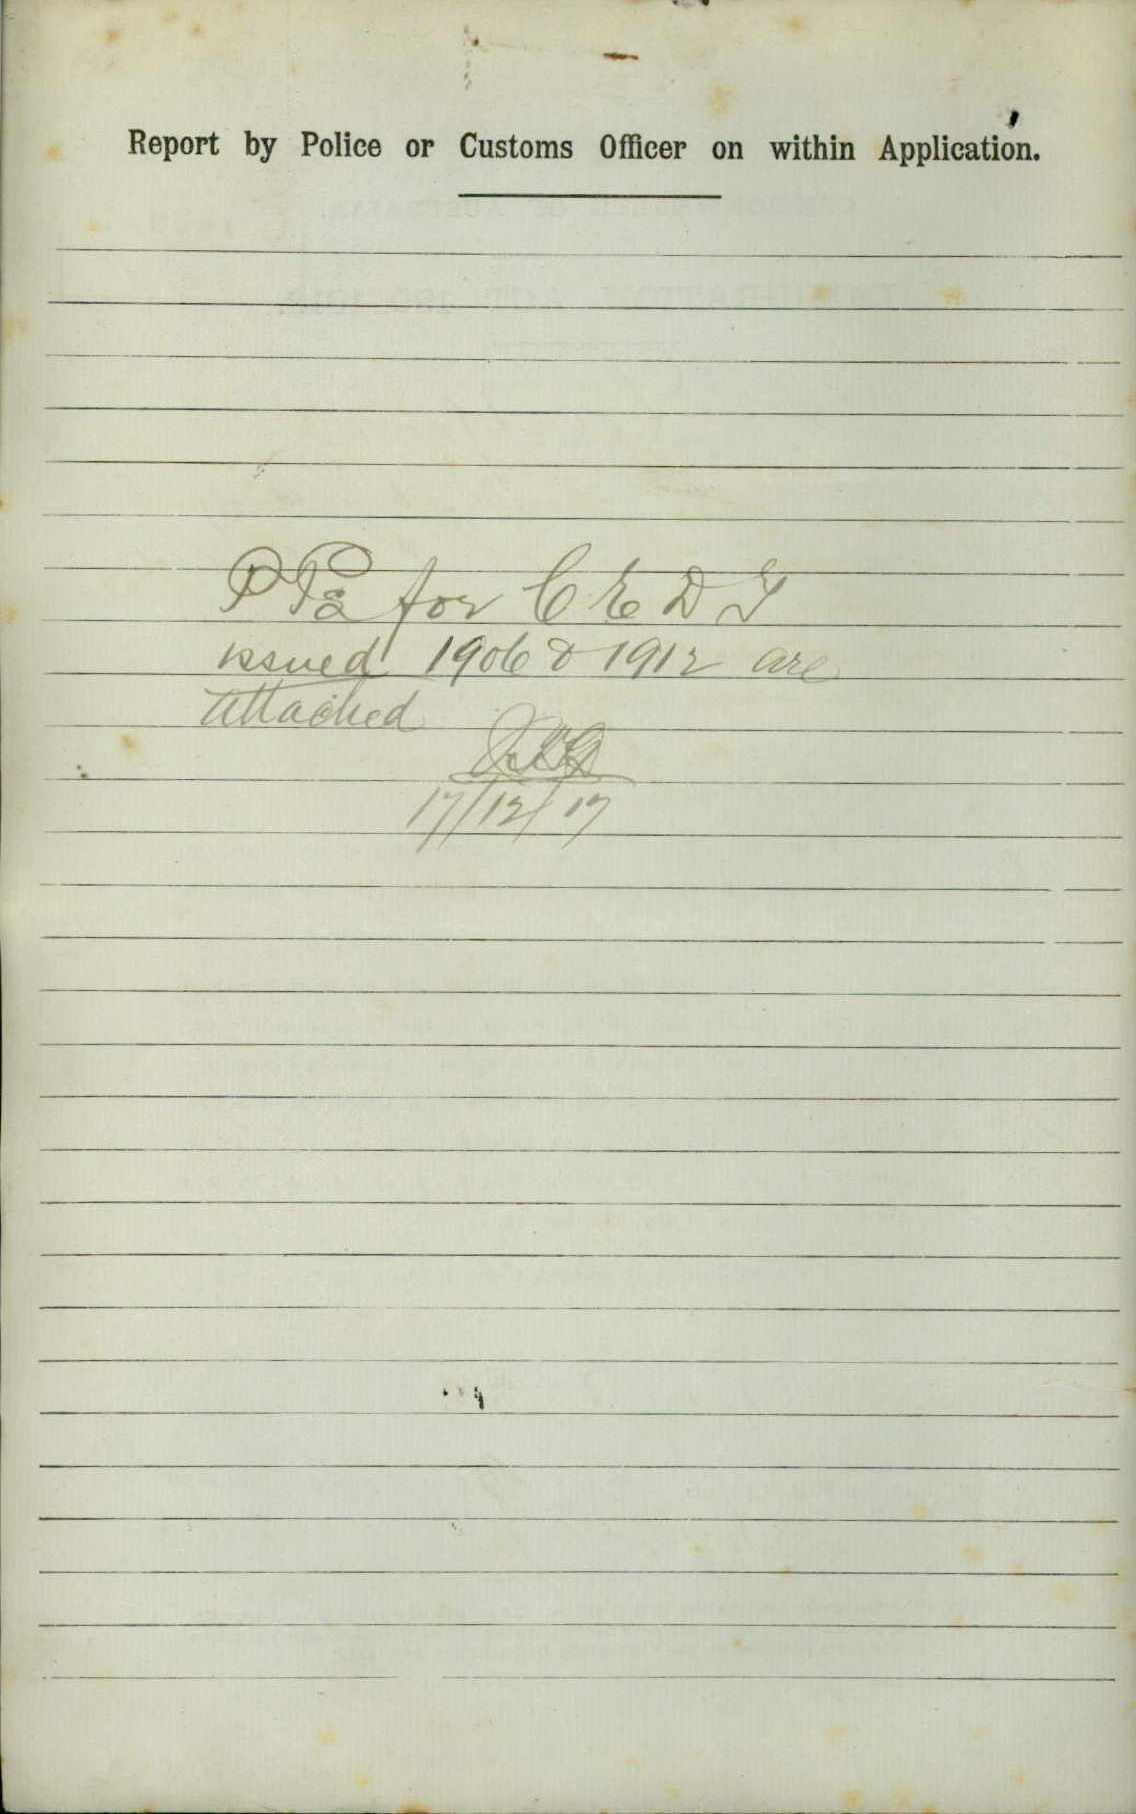 Report by Police or Customs Officer on within Application.
P Ps for C E D T
issued 1906 & 1912 are
attached
17/12/17